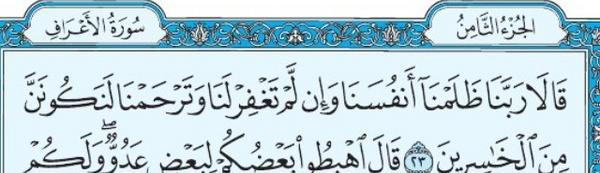 الجُزْءُ الثَّامِنُ
سُورَةُ الأَعْرَافِ
قَالَا رَبَّنَا ظَلَمْنَآ أَنفُسَنَا وَإِن لَّمْ تَغْفِرْ لَنَا وَتَرْحَمْنَا لَنَكُونَنَّ
مِنَ ٱلْخَٰسِرِينَ ٢٣ قَالَ ٱهْبِطُوا۟ بَعْضُكُمْ لِبَعْضٍ عَدُوٌّ ۖ وَلَكُمْ